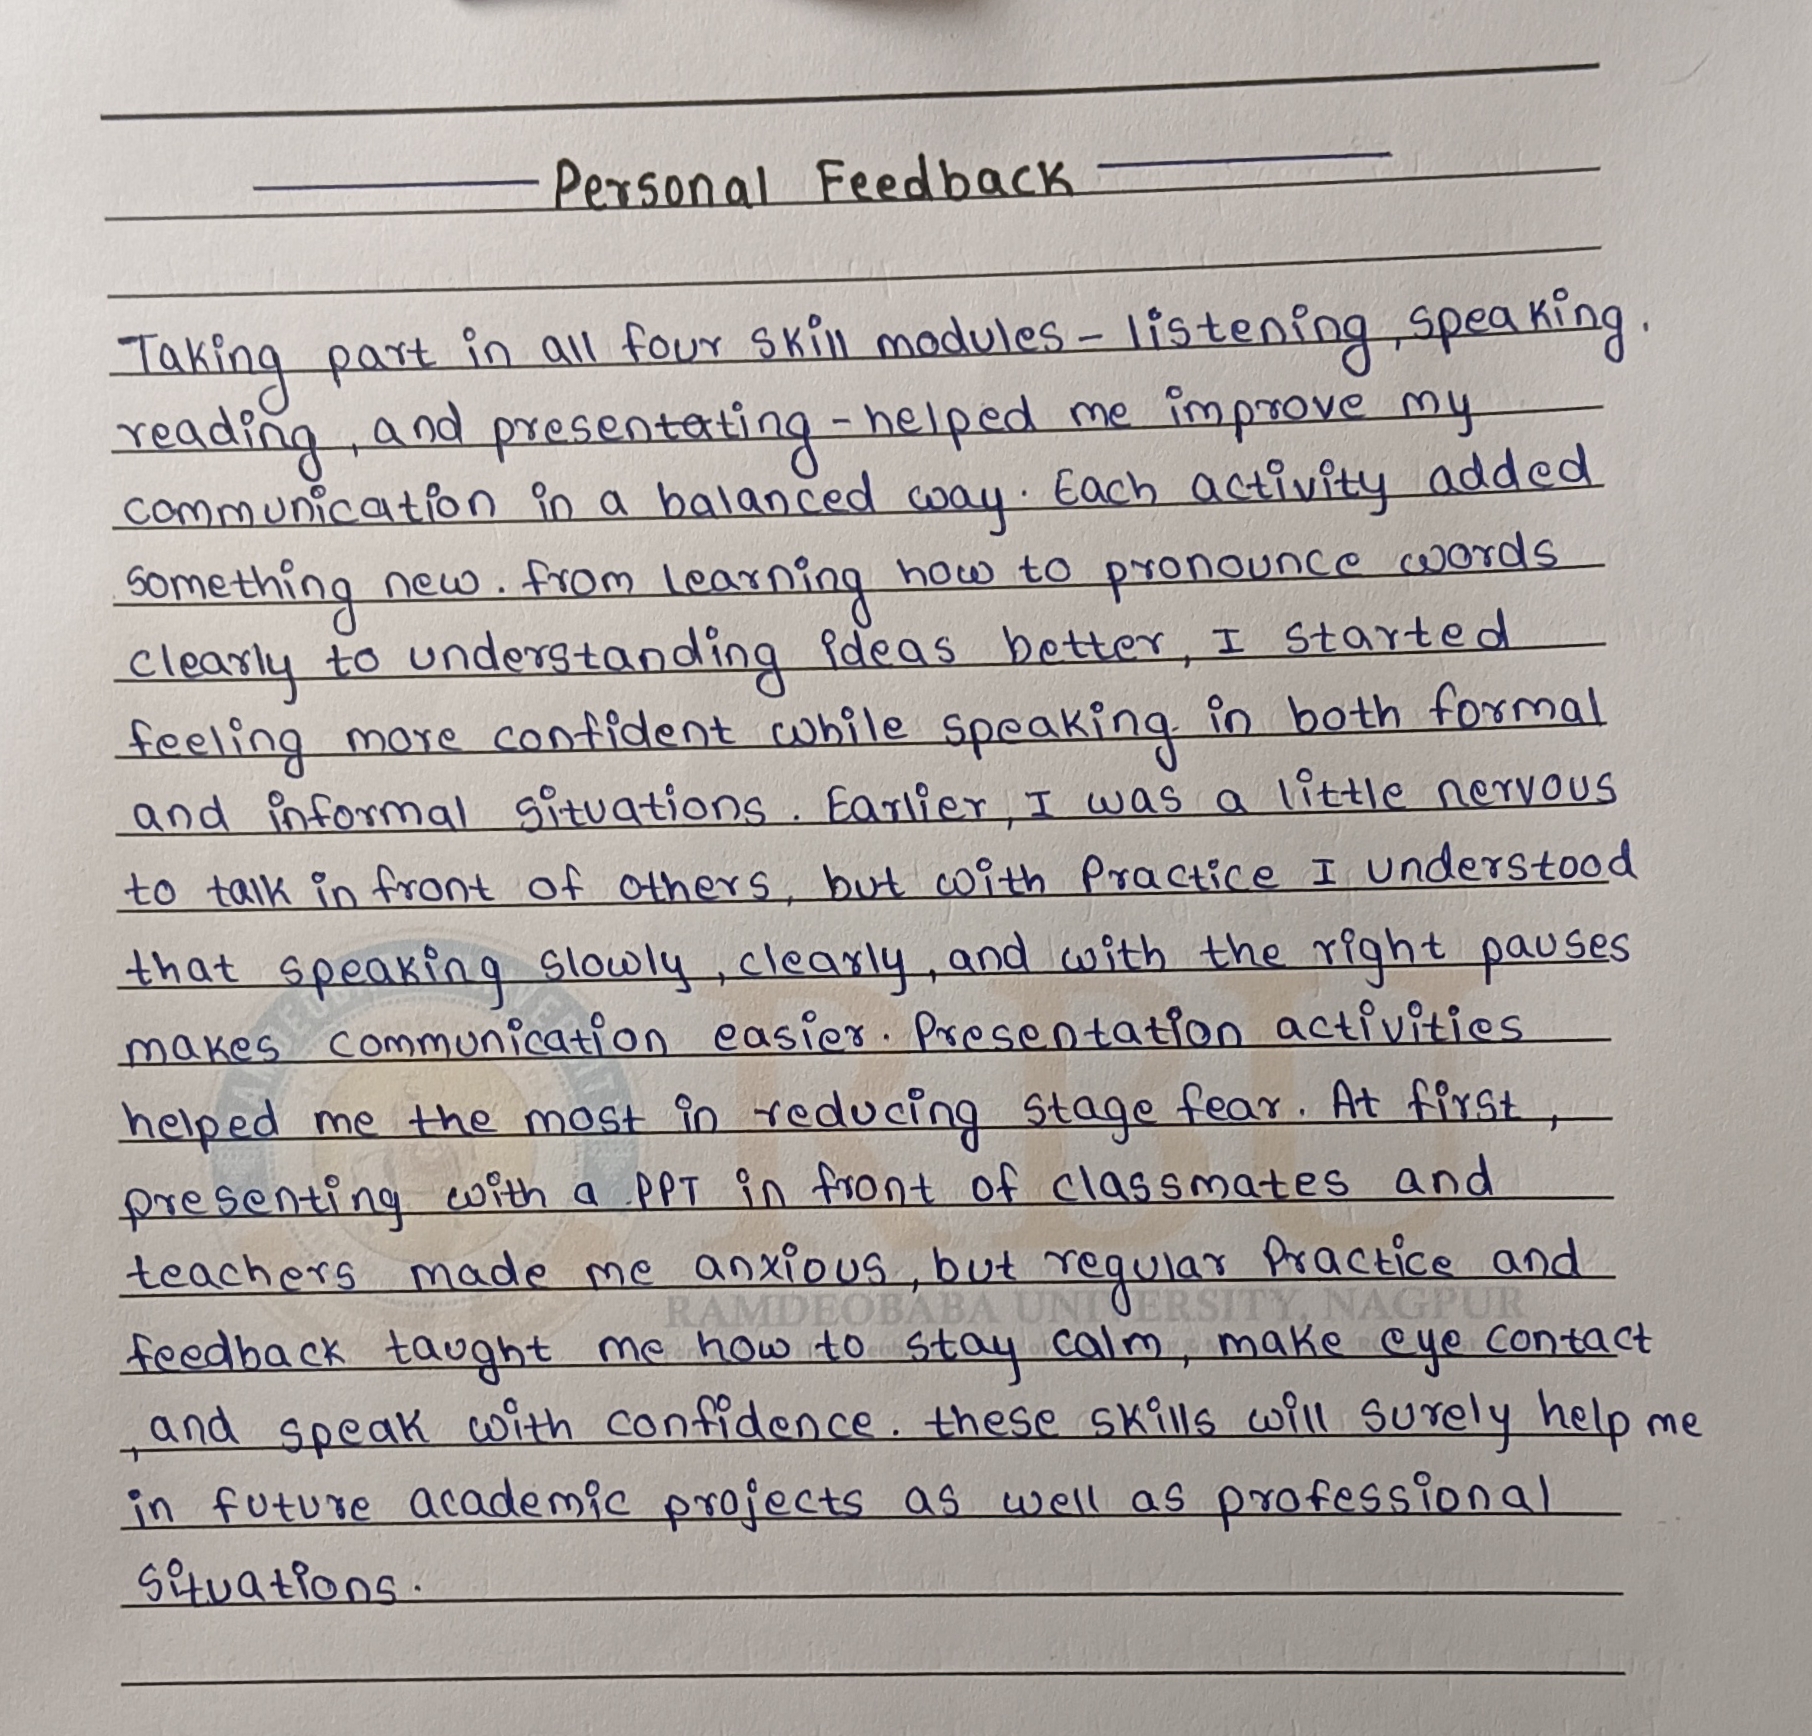 Personal Feedback
Taking part in all four skill modules - listening, speaking.
reading, and presentating - helped me improve my
communication in a balanced way. Each activity added
something new. from learning how to pronounce words
clearly to understanding ideas better, I started
feeling more confident while speaking in both formal
and informal situations. Earlier, I was a little nervous
to talk in front of others, but with Practice I understood
that speaking slowly, clearly, and with the right pauses
makes communication easier. Presentation activities
helped me the most in reducing stage fear. At first,
presenting with a PPT in front of classmates and
teachers made me anxious, but regular Practice and
RBU
RAMDEOBABA UNIVERSITY, NAGPUR
feedback taught me how to stay calm, make eye contact
, and speak with confidence. these skills will surely help me
in future academic projects as well as professional
situations.